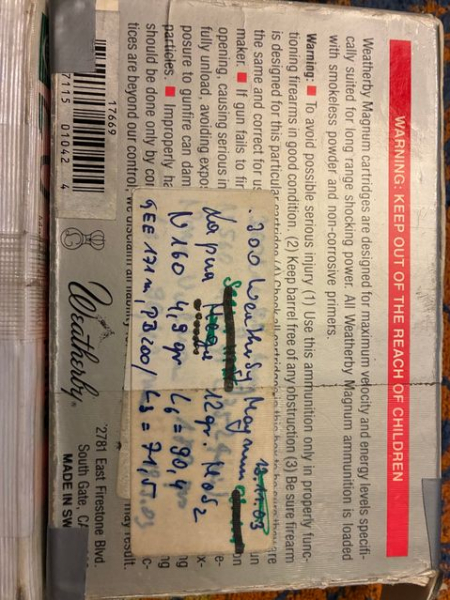 WARNING: KEEP OUT OF THE REACH OF CHILDREN
Weatherby Magnum cartridges are designed for maximum velocity and energy levels specifi-
cally suited for long range shocking power. All Weatherby Magnum ammunition is loaded
with smokeless powder and non-corrosive primers.
Warning: ■ To avoid possible serious injury (1) Use this ammunition only in properly func-
tioning firearms in good condition. (2) Keep barrel free of any obstruction (3) Be sure firearm
is designed for this particular cartridge (4) Check all cartridges in this box to be sure they are
the same and correct for
maker. ■ If gun fails to fir
opening, causing serious in
fully unload, avoiding expo
posure to gunfire can dam
particles. ■ Improperly ha
should be done only by co
tices are beyond our control, we disclaim all may result.
.300 Weatherby Magnum
13.11.03
Lapua 12gr.
N160 4,9 gr L6 = 90,4
GEE 171m, PB200/ L3 = 71,55
17669
7115 01042 4
Weatherby®
2781 East Firestone Blvd.
South Gate, CA
MADE IN SW